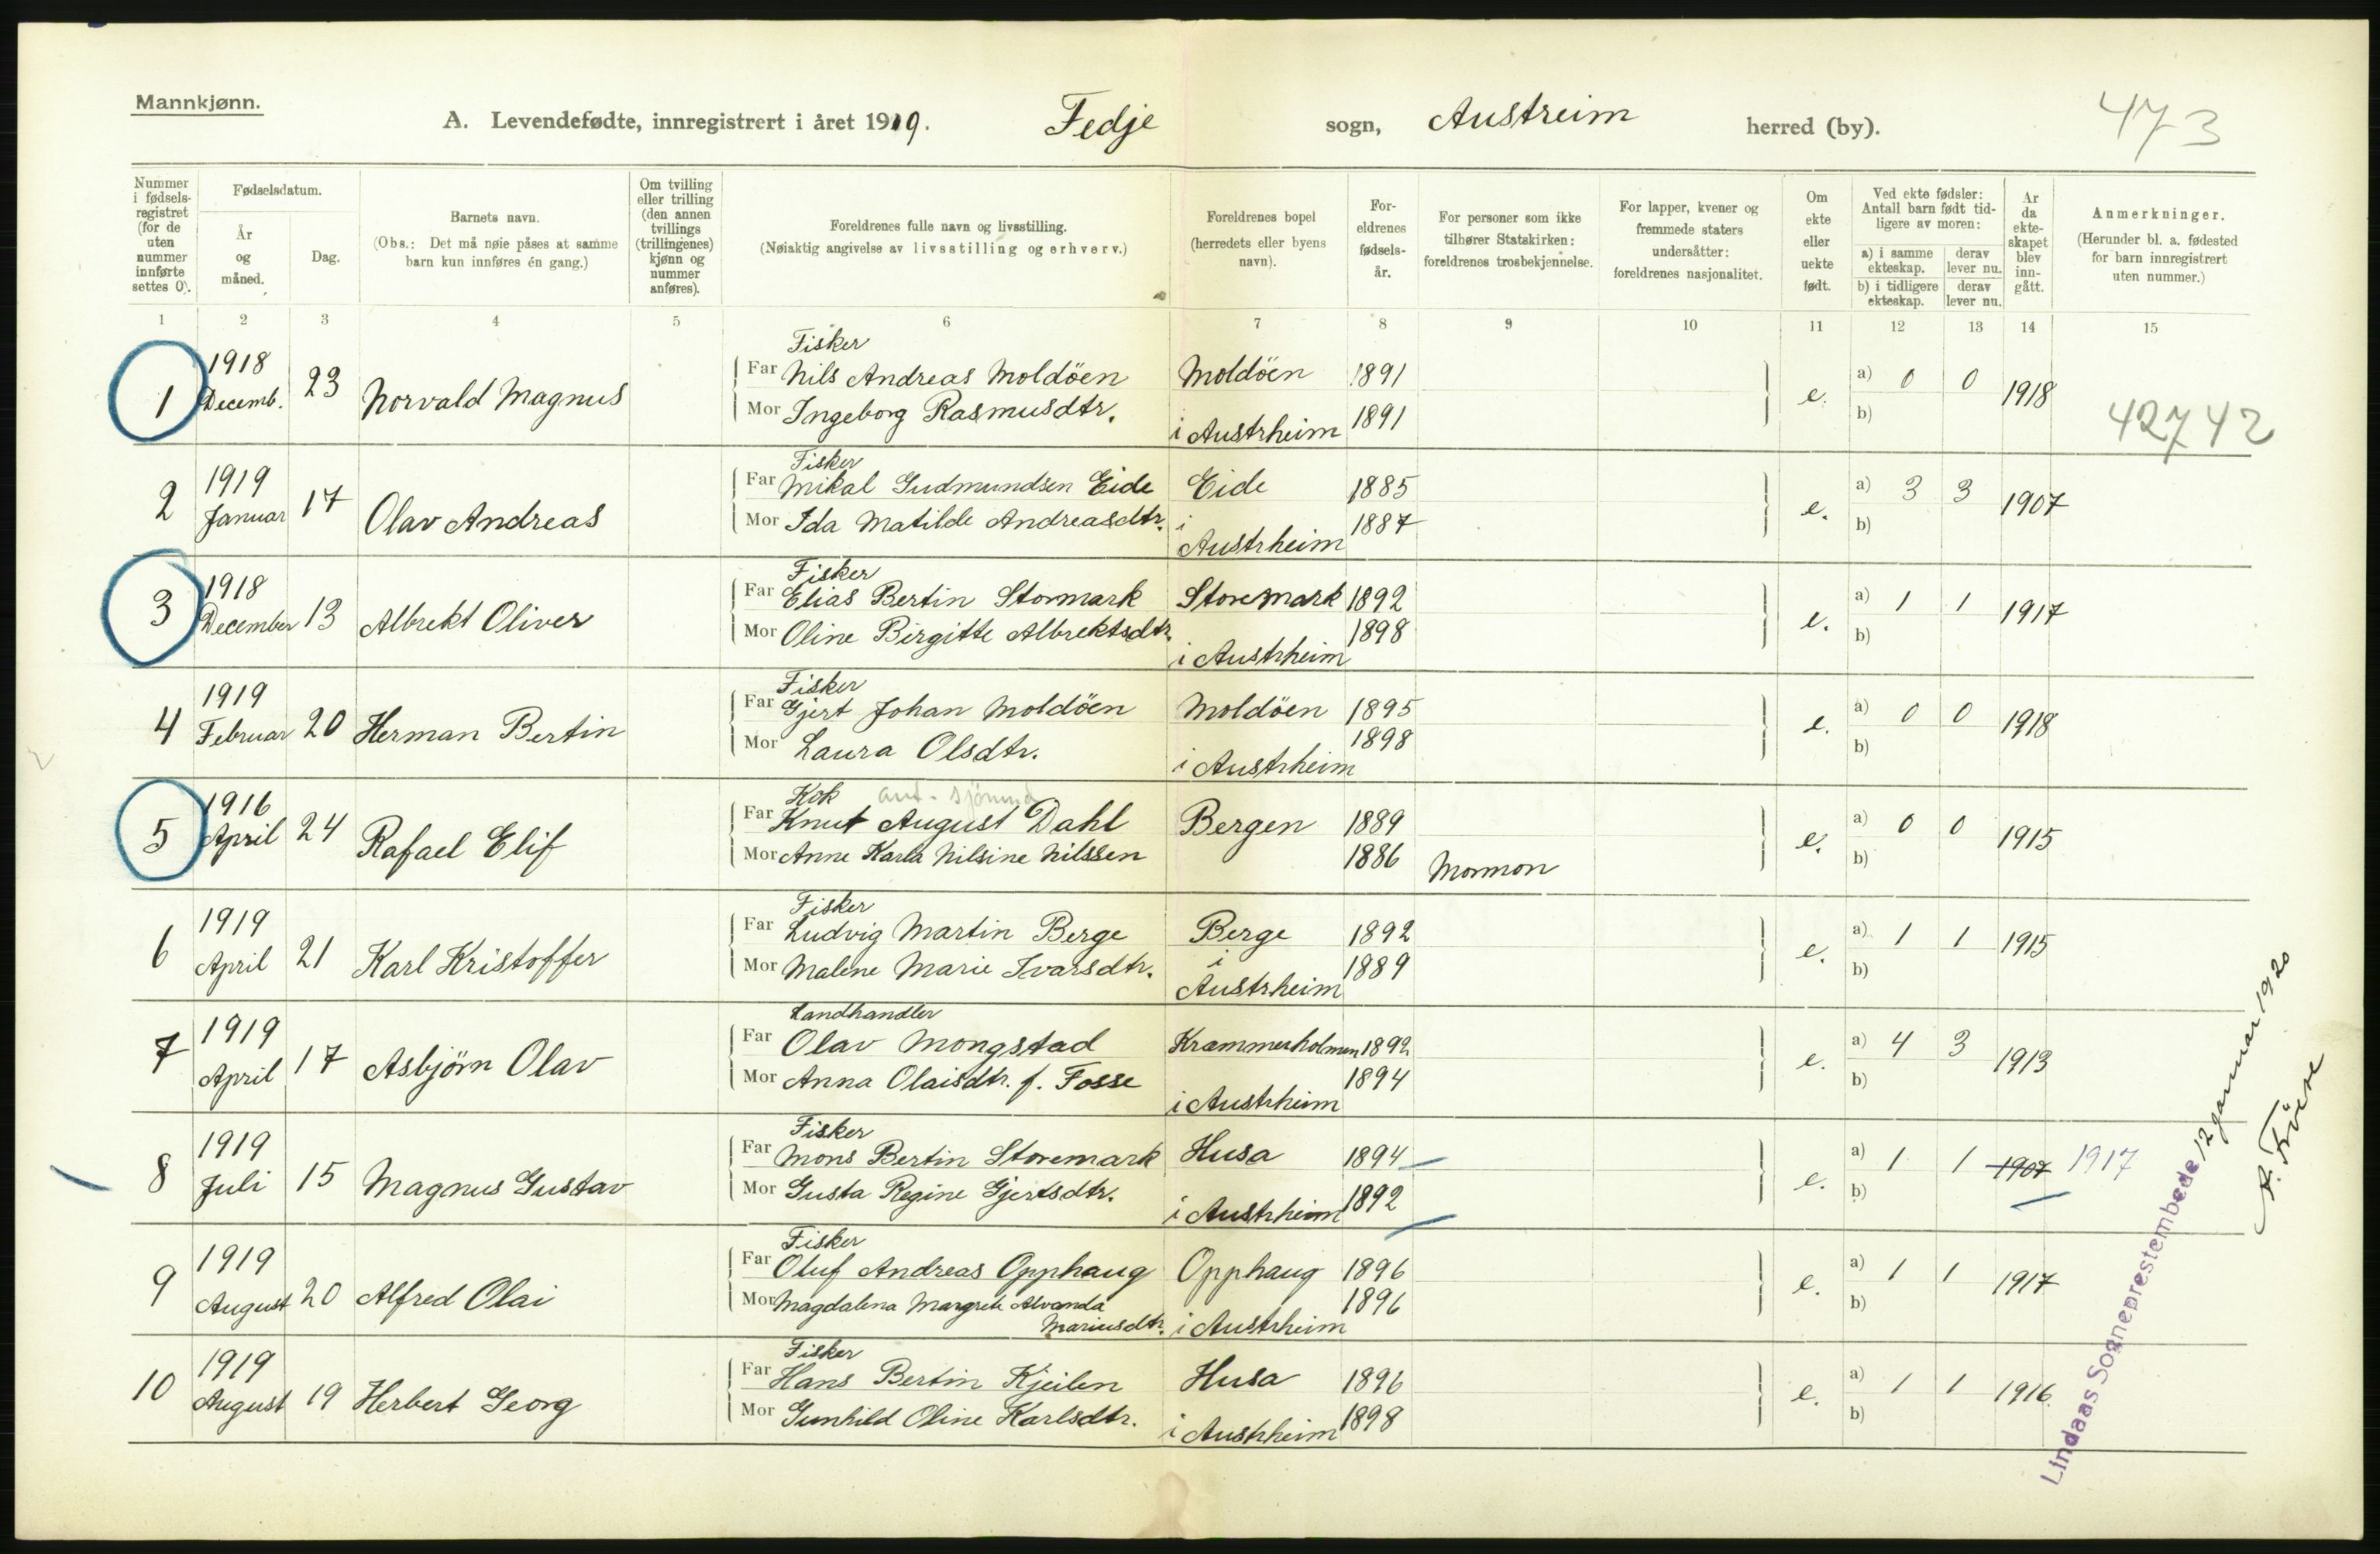 Mannkjønn.
A. Levendefødte, innregistrert i året 1919. Fedje sogn, Austreim herred (by).
473
Nummer i fødsels-registret (for de uten nummer innførte settes 0).
Fødselsdatum.
År og måned.
Dag.
Barnets navn.
(Obs.: Det må nøie påses at samme barn kun innføres én gang.)
Om tvilling eller trilling (den annen tvillings (trillingenes) kjønn og nummer anføres).
Foreldrenes fulle navn og livsstilling.
(Nøiaktig angivelse av livsstilling og erhverv.)
Foreldrenes bopel (herredets eller byens navn).
For-eldrenes fødsels-år.
For personer som ikke tilhører Statskirken: foreldrenes trosbekjennelse.
For lapper, kvener og fremmede staters undersåtter: foreldrenes nasjonalitet.
Om ekte eller uekte født.
Ved ekte fødsler: Antall barn født tid-ligere av moren:
a) i samme ekteskap.
derav lever nu.
b) i tidligere ekteskap.
derav lever nu.
År da ekte-skapet blev inn-gått.
Anmerkninger.
(Herunder bl. a. fødested for barn innregistrert uten nummer.)
1 2 3 4 5 6 7 8 9 10 11 12 13 14 15
Fisker
1 1918 Decemb. 23 Norvald Magnus Far Nils Andreas Moldöen Moldöen 1891 e. a) 0 0 1918
Mor Ingeborg Rasmusdtr. i Austrheim 1891 b)
42742
Fisker
2 1919 Januar 17 Olav Andreas Far Mikal Gudmundsen Eide Eide 1885 e. a) 3 3 1907
Mor Ida Matilde Andreasdtr. i Austrheim 1887 b)
Fisker
3 1918 December 13 Albrekt Oliver Far Elias Bertin Stormark Storemark 1892 e. a) 1 1 1917
Mor Oline Birgitte Albrektsdtr. i Austrheim 1898 b)
Fisker
4 1919 Februar 20 Herman Bertin Far Gjert Johan Moldöen Moldöen 1895 e. a) 0 0 1918
Mor Laura Olsdtr. i Austrheim 1898 b)
Kok
5 1916 April 24 Rafael Elif Far Knut August Dahl Bergen 1889 e. a) 0 0 1915
Mor Anne Karla Nilsine Nilssen 1886 Mormon b)
Fisker
6 1919 April 21 Karl Kristoffer Far Ludvig Martin Berge Berge 1892 e. a) 1 1 1915
Mor Malene Marie Ivarsdtr. i Austrheim 1889 b)
Landhandler
7 1919 April 17 Asbjörn Olav Far Olav Mongstad Krammerholmen 1892 e. a) 4 3 1913
Mor Anna Olaisdtr. f. Fosse i Austrheim 1894 b)
Fisker
8 1919 Juli 15 Magnus Gustav Far Mons Bertin Storemark Husa 1894 e. a) 1 1 1907 1917
Mor Gusta Regine Gjertsdtr. i Austrheim 1892 b)
Fisker
9 1919 August 20 Alfred Olai Far Oluf Andreas Opphaug Opphaug 1896 e. a) 1 1 1917
Mor Magdalena Margrete Alvanda Mariusdtr. i Austrheim 1896 b)
Fisker
10 1919 August 19 Herbert Georg Far Hans Bertin Kjeilen Husa 1896 e. a) 1 1 1916.
Mor Gunhild Oline Karlsdtr. i Austrheim 1898 b)
Lindaas Sogneprestembede 12 januar 1920